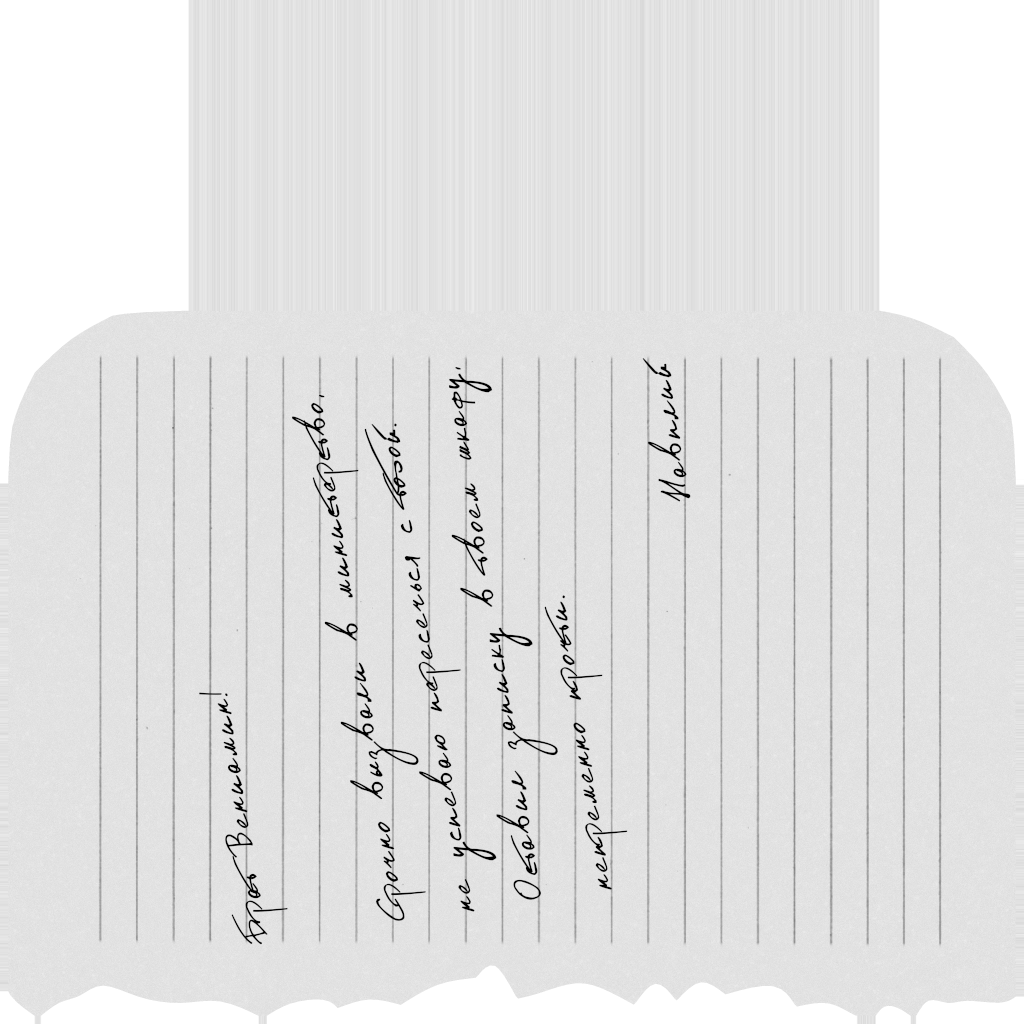 Брат Вениамин!
Срочно вызвали в министерство.
не успеваю пересечься с тобой.
Оставил записку в твоем шкафу.
непременно прочти.
Павилий